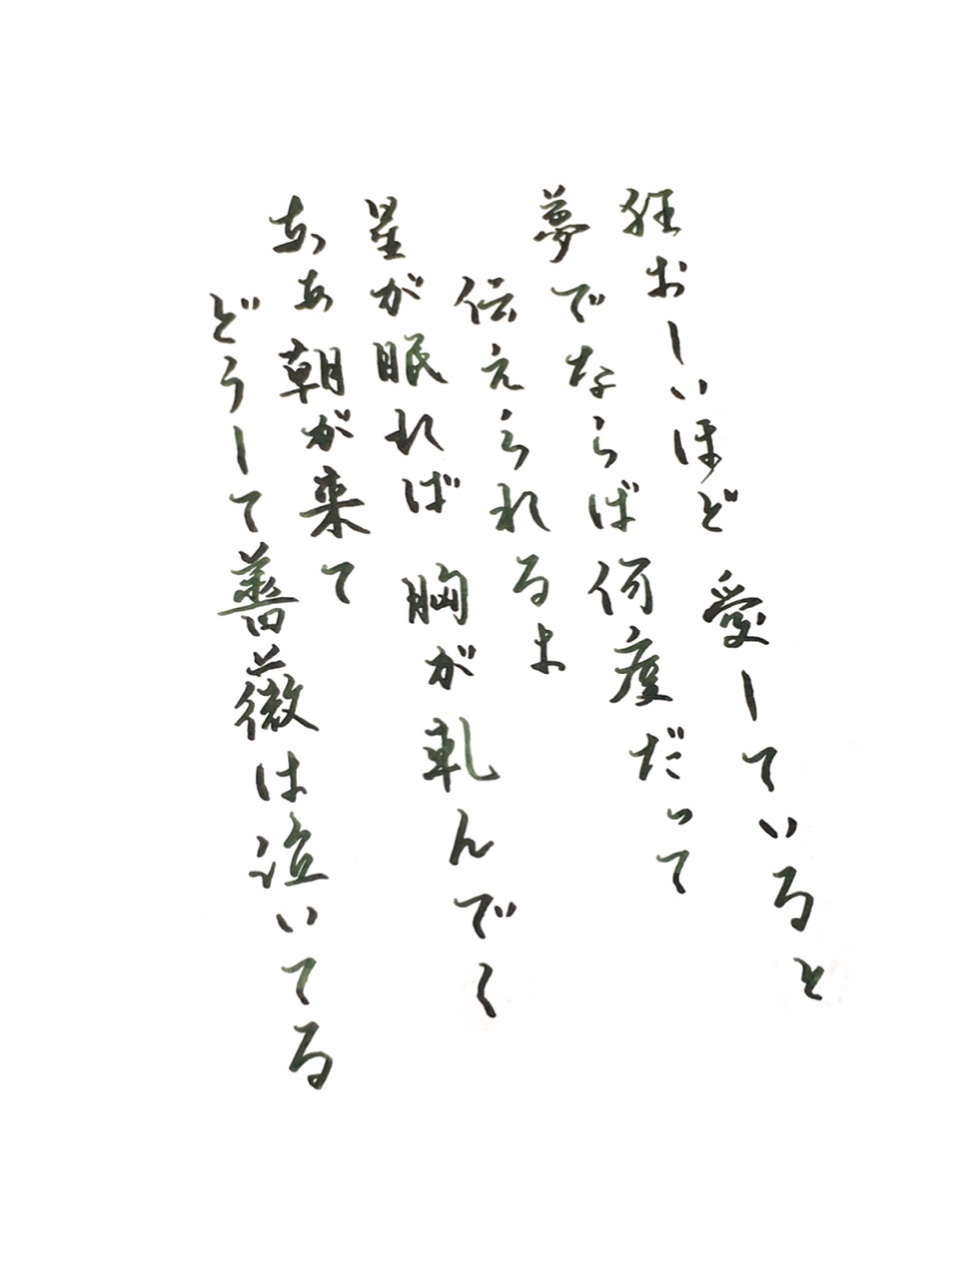 狂おしいほど 愛していると
夢でならば何度だって
伝えられるよ
星が眠れば 胸が軋んでく
ああ朝が来て
どうして薔薇は泣いてる